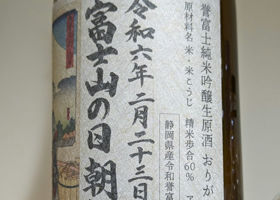 誉富士純米吟醸生原酒 おりが
原材料名 米・米こうじ
精米歩合60% ア
令和六年二月二十三日
富士山の日 朝
静岡県産令和誉富